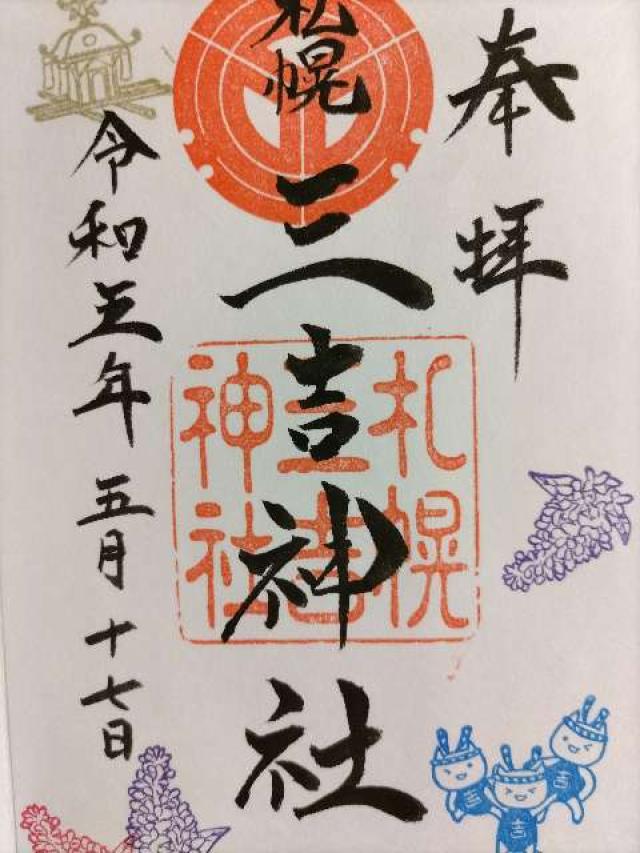 奉拝
札幌
三吉神社
札幌
三吉
神社
令和五年五月十七日
吉
吉
吉